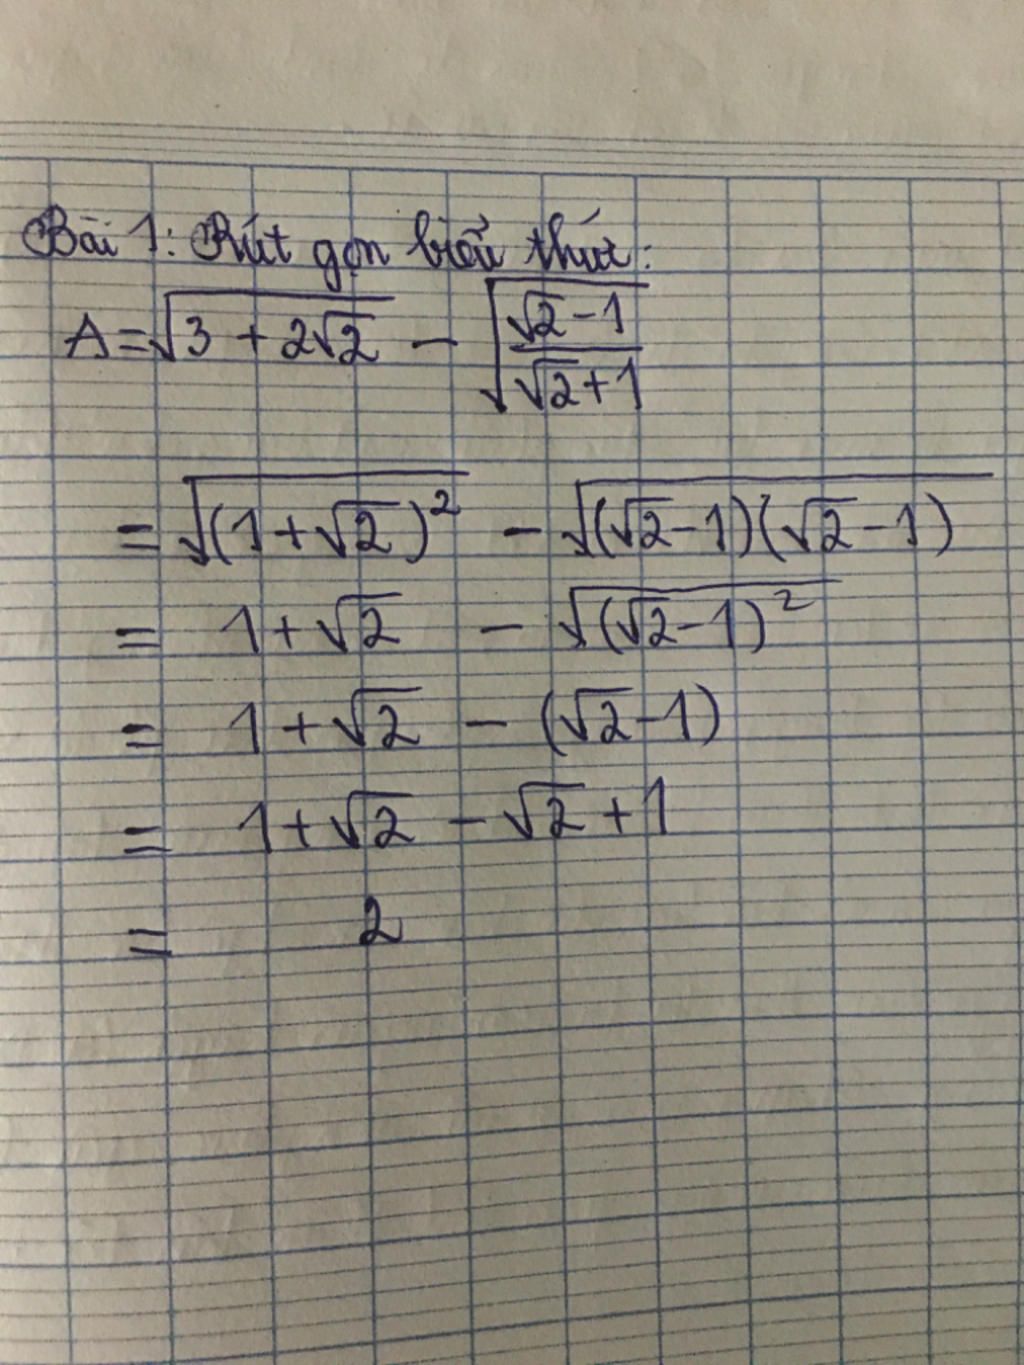 Bài 1: Rút gọn biểu thức:
A = √(3 + 2√2) - √((√2 - 1)/(√2 + 1))
= √((1 + √2)²) - √((√2 - 1)(√2 - 1))
= 1 + √2 - √((√2 - 1)²)
= 1 + √2 - (√2 - 1)
= 1 + √2 - √2 + 1
= 2